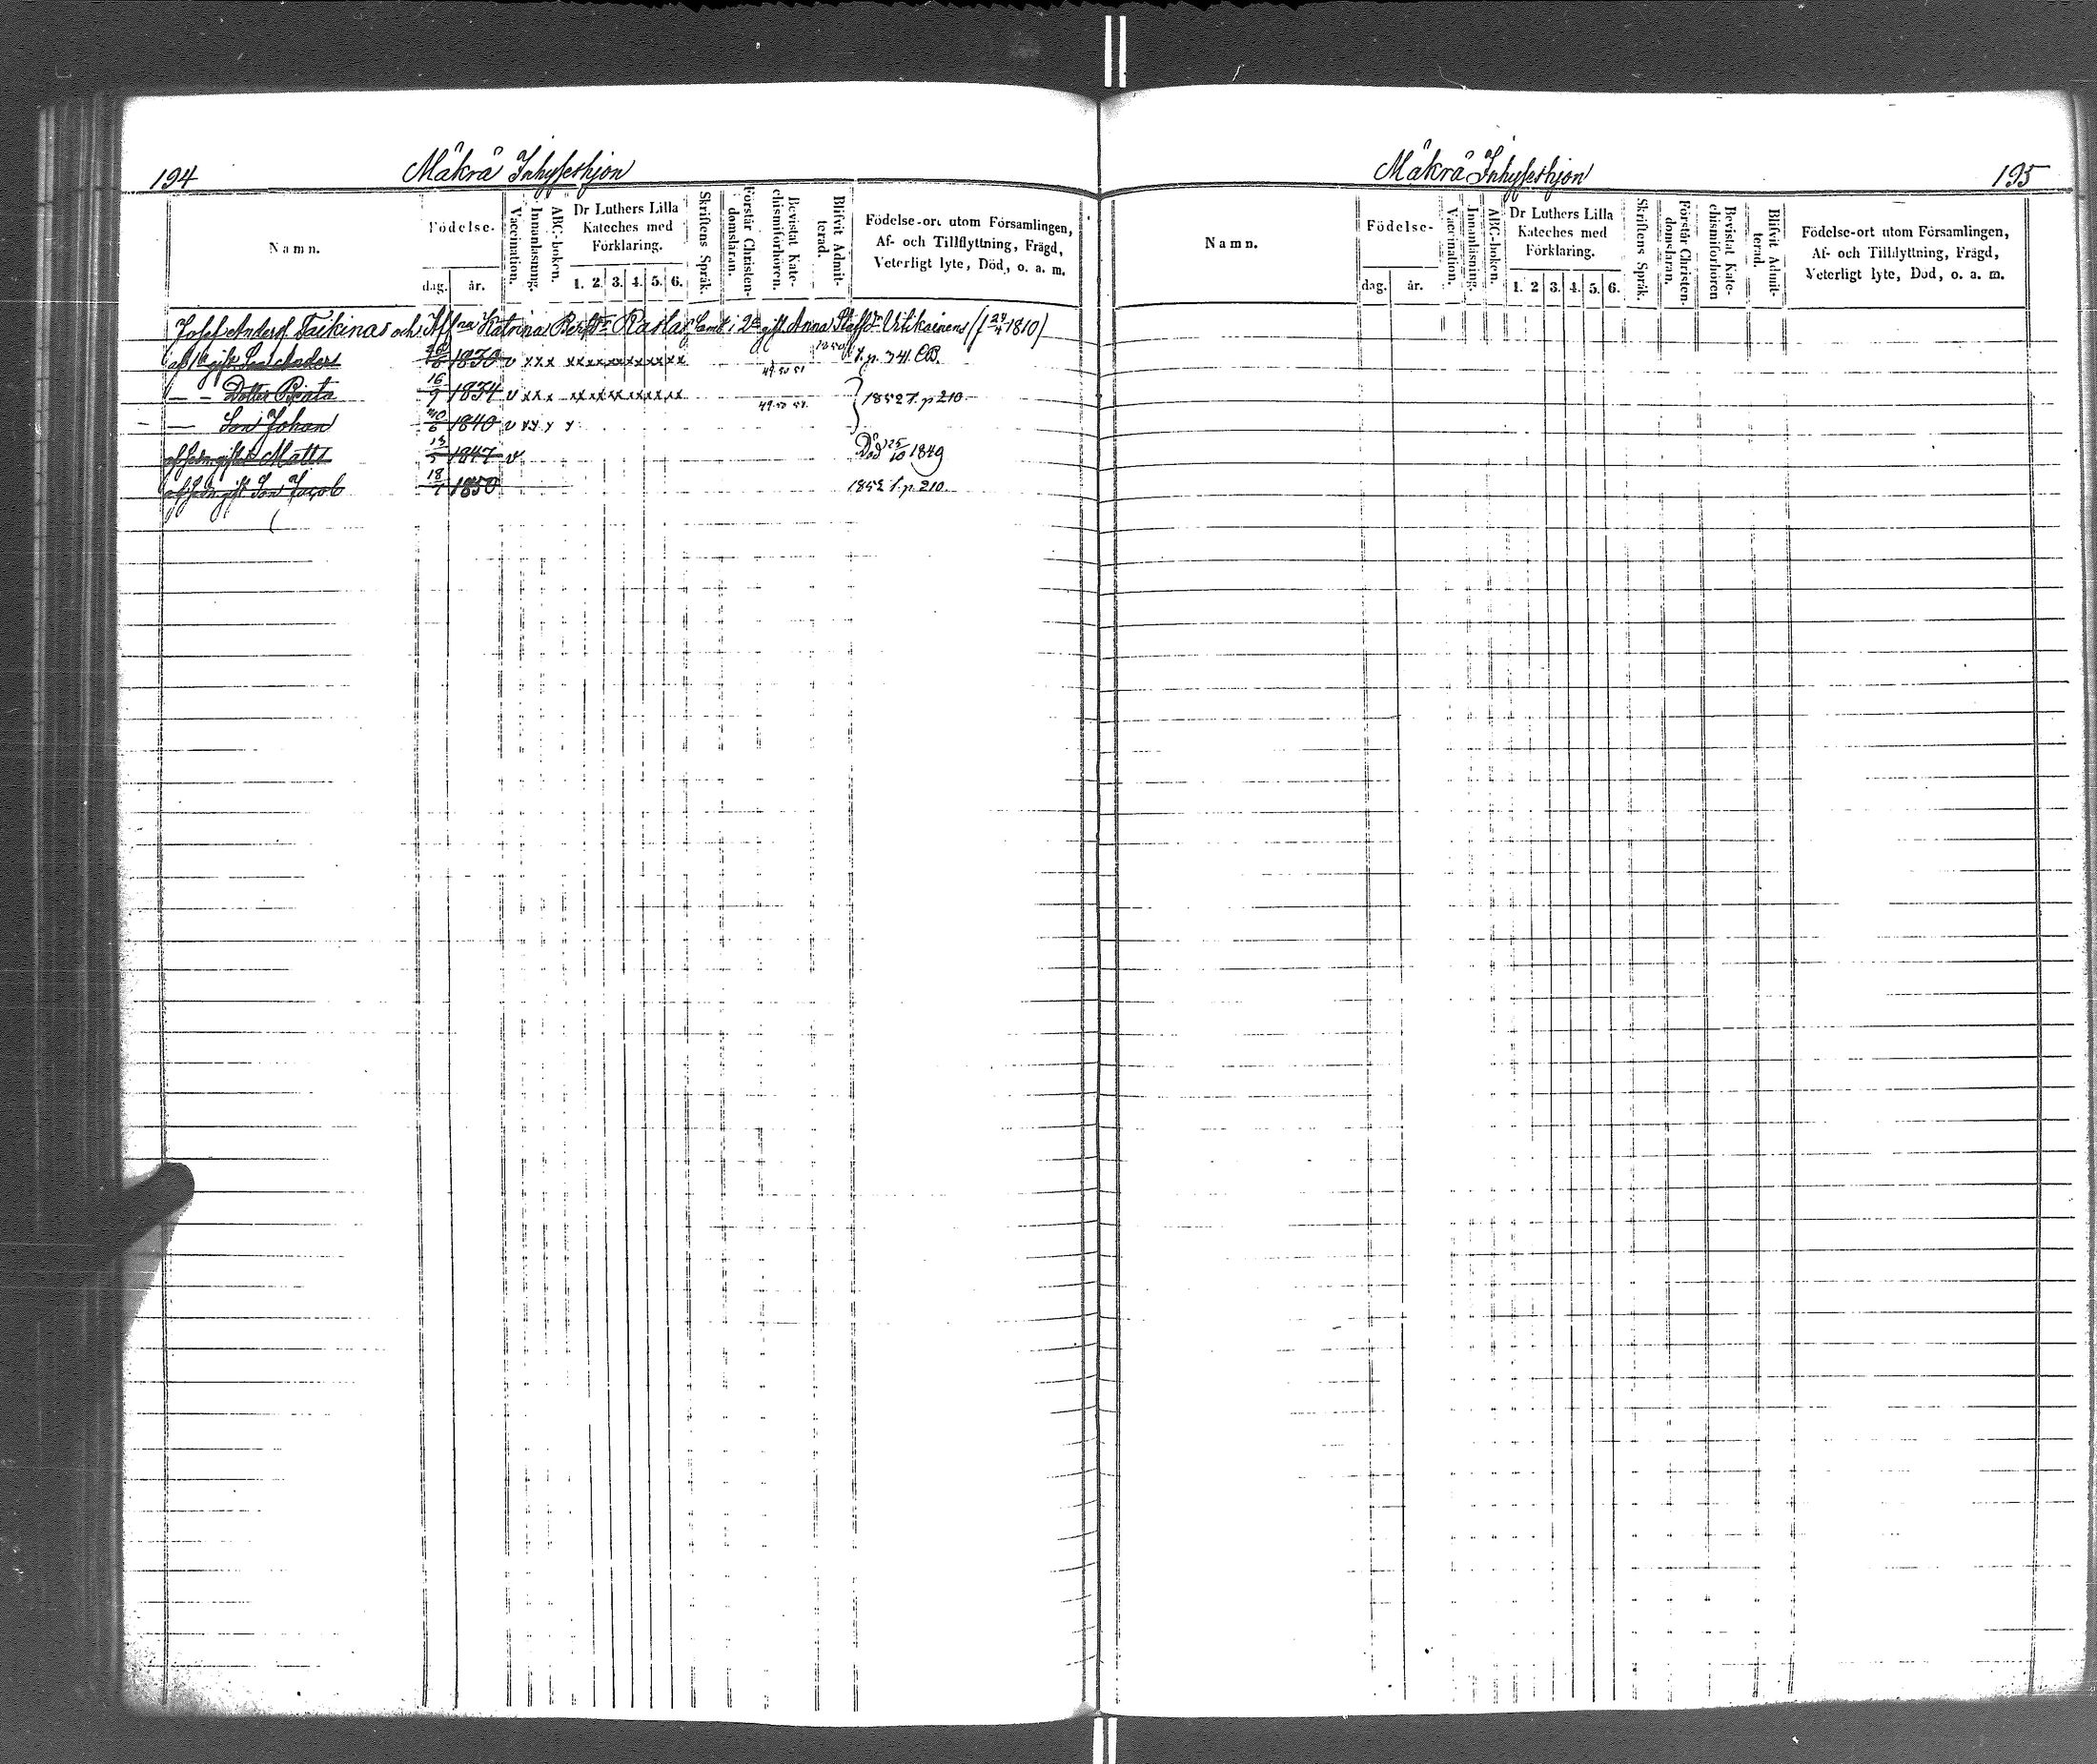 194 Mäkrä Inhyseshjon
Namn. Födelse- dag. år. Vaccination. Innanläsning. ABC-boken. Dr Luthers Lilla Kateches med Förklaring. 1. 2. 3. 4. 5. 6. Skriftens Språk. Förstår Christendomsläran. Bevistat Katechismiförhören. Blifvit Admitterad. Födelse-ort utom Församlingen, Af- och Tillflyttning, Frägd, Veterligt lyte, Död, o. a. m.
Josef Anders. Taikinas och Katrina Raslas samt i 2a gift Anna Staffdr Urtikainens (f 1810)
af 1a gift Son Anders 1830 v x x x xxxxxxxxxxxx 49 50 51 1850 t. p. 341. OB.
— — Dotter Beata 16/9 1834 v x x x xxxxxxxxxxxx 49 50 51 1852 t. p 210.
— Son Johan 30/6 1840 v x x x x
Matts 13/5 1847 v Död 25/10 1849
gift Son Jacob 18/7 1850 1852 t. p. 210.
Mäkrä Inhyseshjon 195
Namn. Födelse- dag. år. Vaccination. Innanläsning. ABC-boken. Dr Luthers Lilla Kateches med Förklaring. 1. 2 3. 4. 5. 6. Skriftens Språk. Förstår Christendomsläran. Bevistat Katechismiförhören Blifvit Admitterad. Födelse-ort utom Församlingen, Af- och Tillflyttning, Frägd, Veterligt lyte, Död, o. a. m.